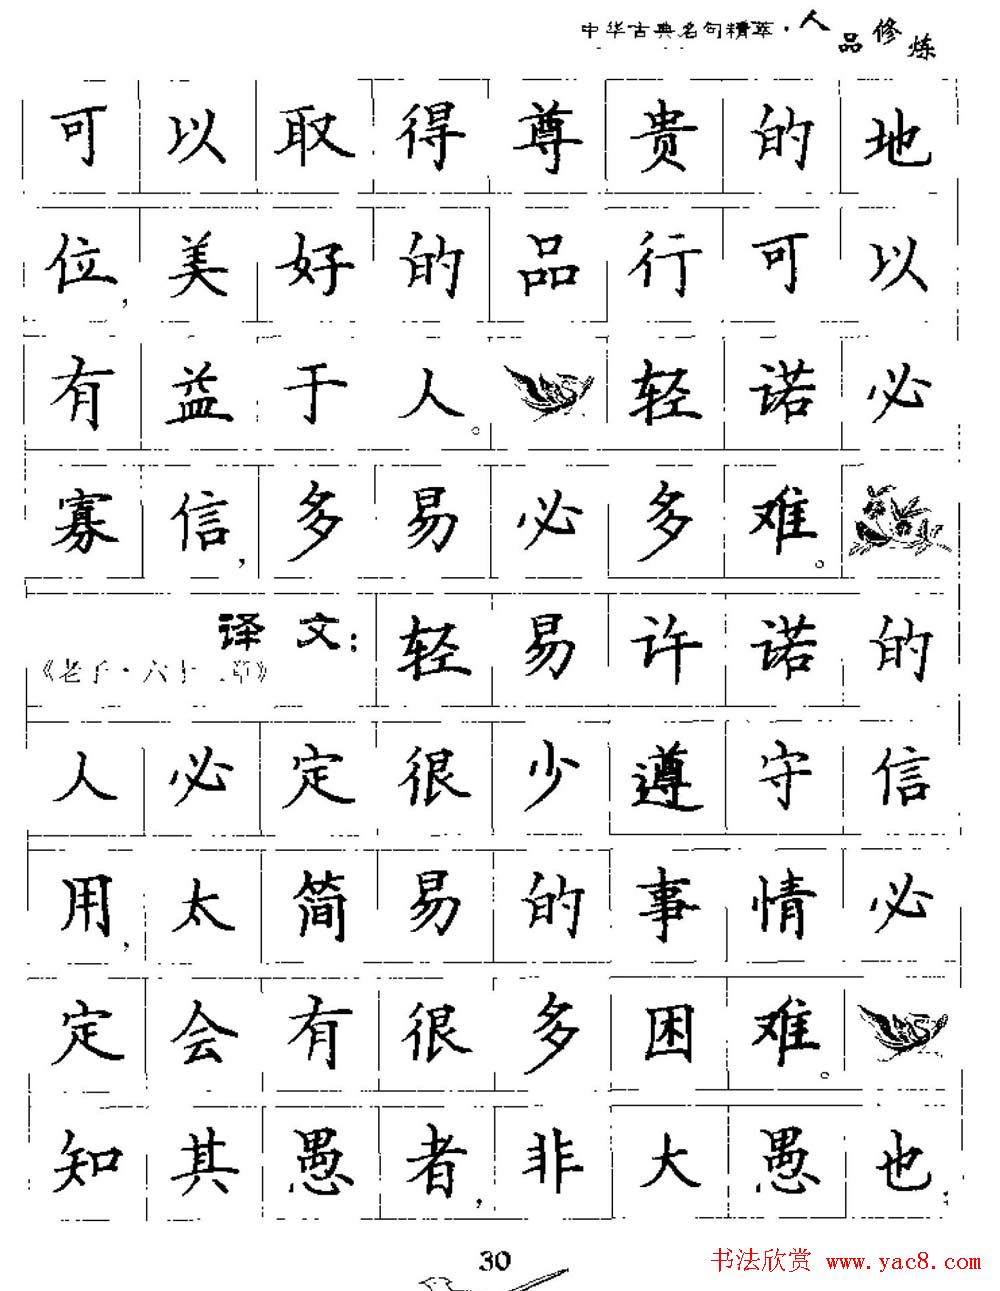 中华古典名句精萃·人品修炼
可以取得尊贵的地
位,美好的品行可以
有益于人。轻诺必
寡信,多易必多难。
译文:轻易许诺的
《老子·六十三章》
人必定很少遵守信
用,太简易的事情必
定会有很多困难。
知其愚者,非大愚也;
30
书法欣赏 www.yac8.com